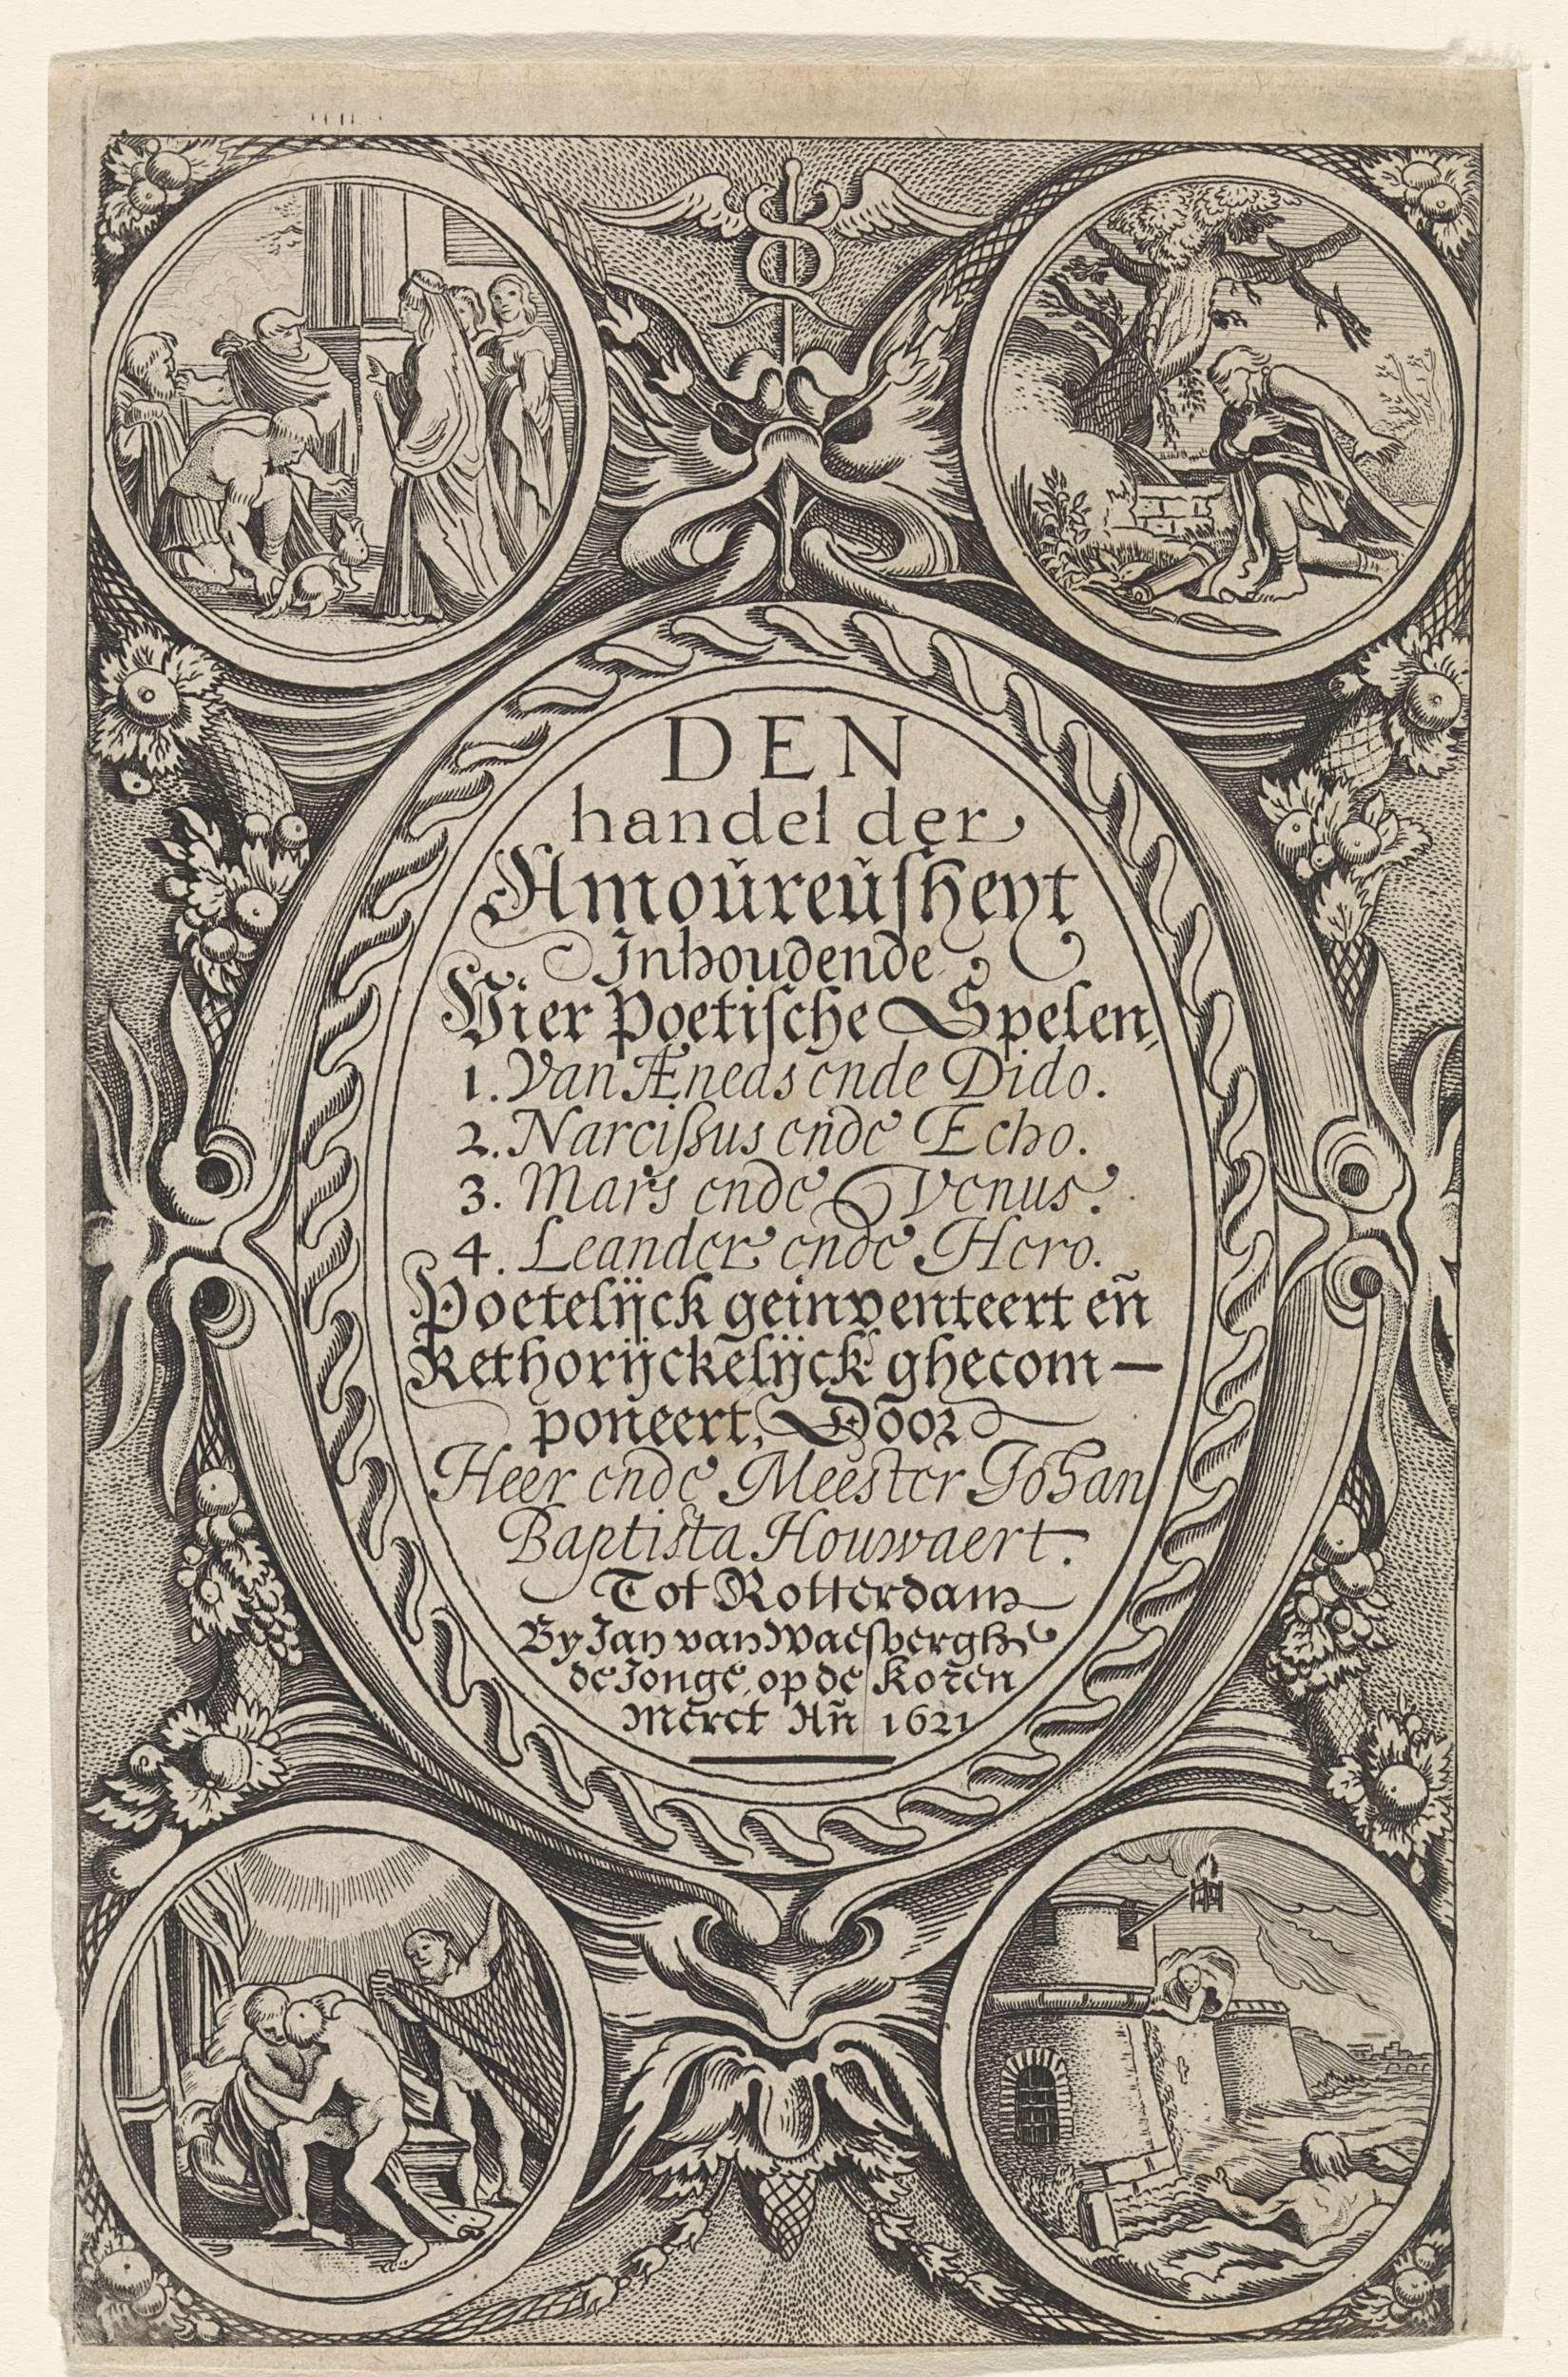 DEN
handel der
Amoŭreŭſheyt
Inhoudende
Vier Poetiſche Spelen,
1. Van Æneas ende Dido.
2. Narciſsus ende Echo.
3. Mars ende Venus.
4. Leander ende Hero.
Poetelijck geinventeert eñ
Rethorijckelijck ghecom—
poneert, Door
Heer ende Meester Johan
Baptista Houwaert.
Tot Rotterdam
By Jan van Waesbergh
de Jonge, op de Koren
Merct Añ 1621